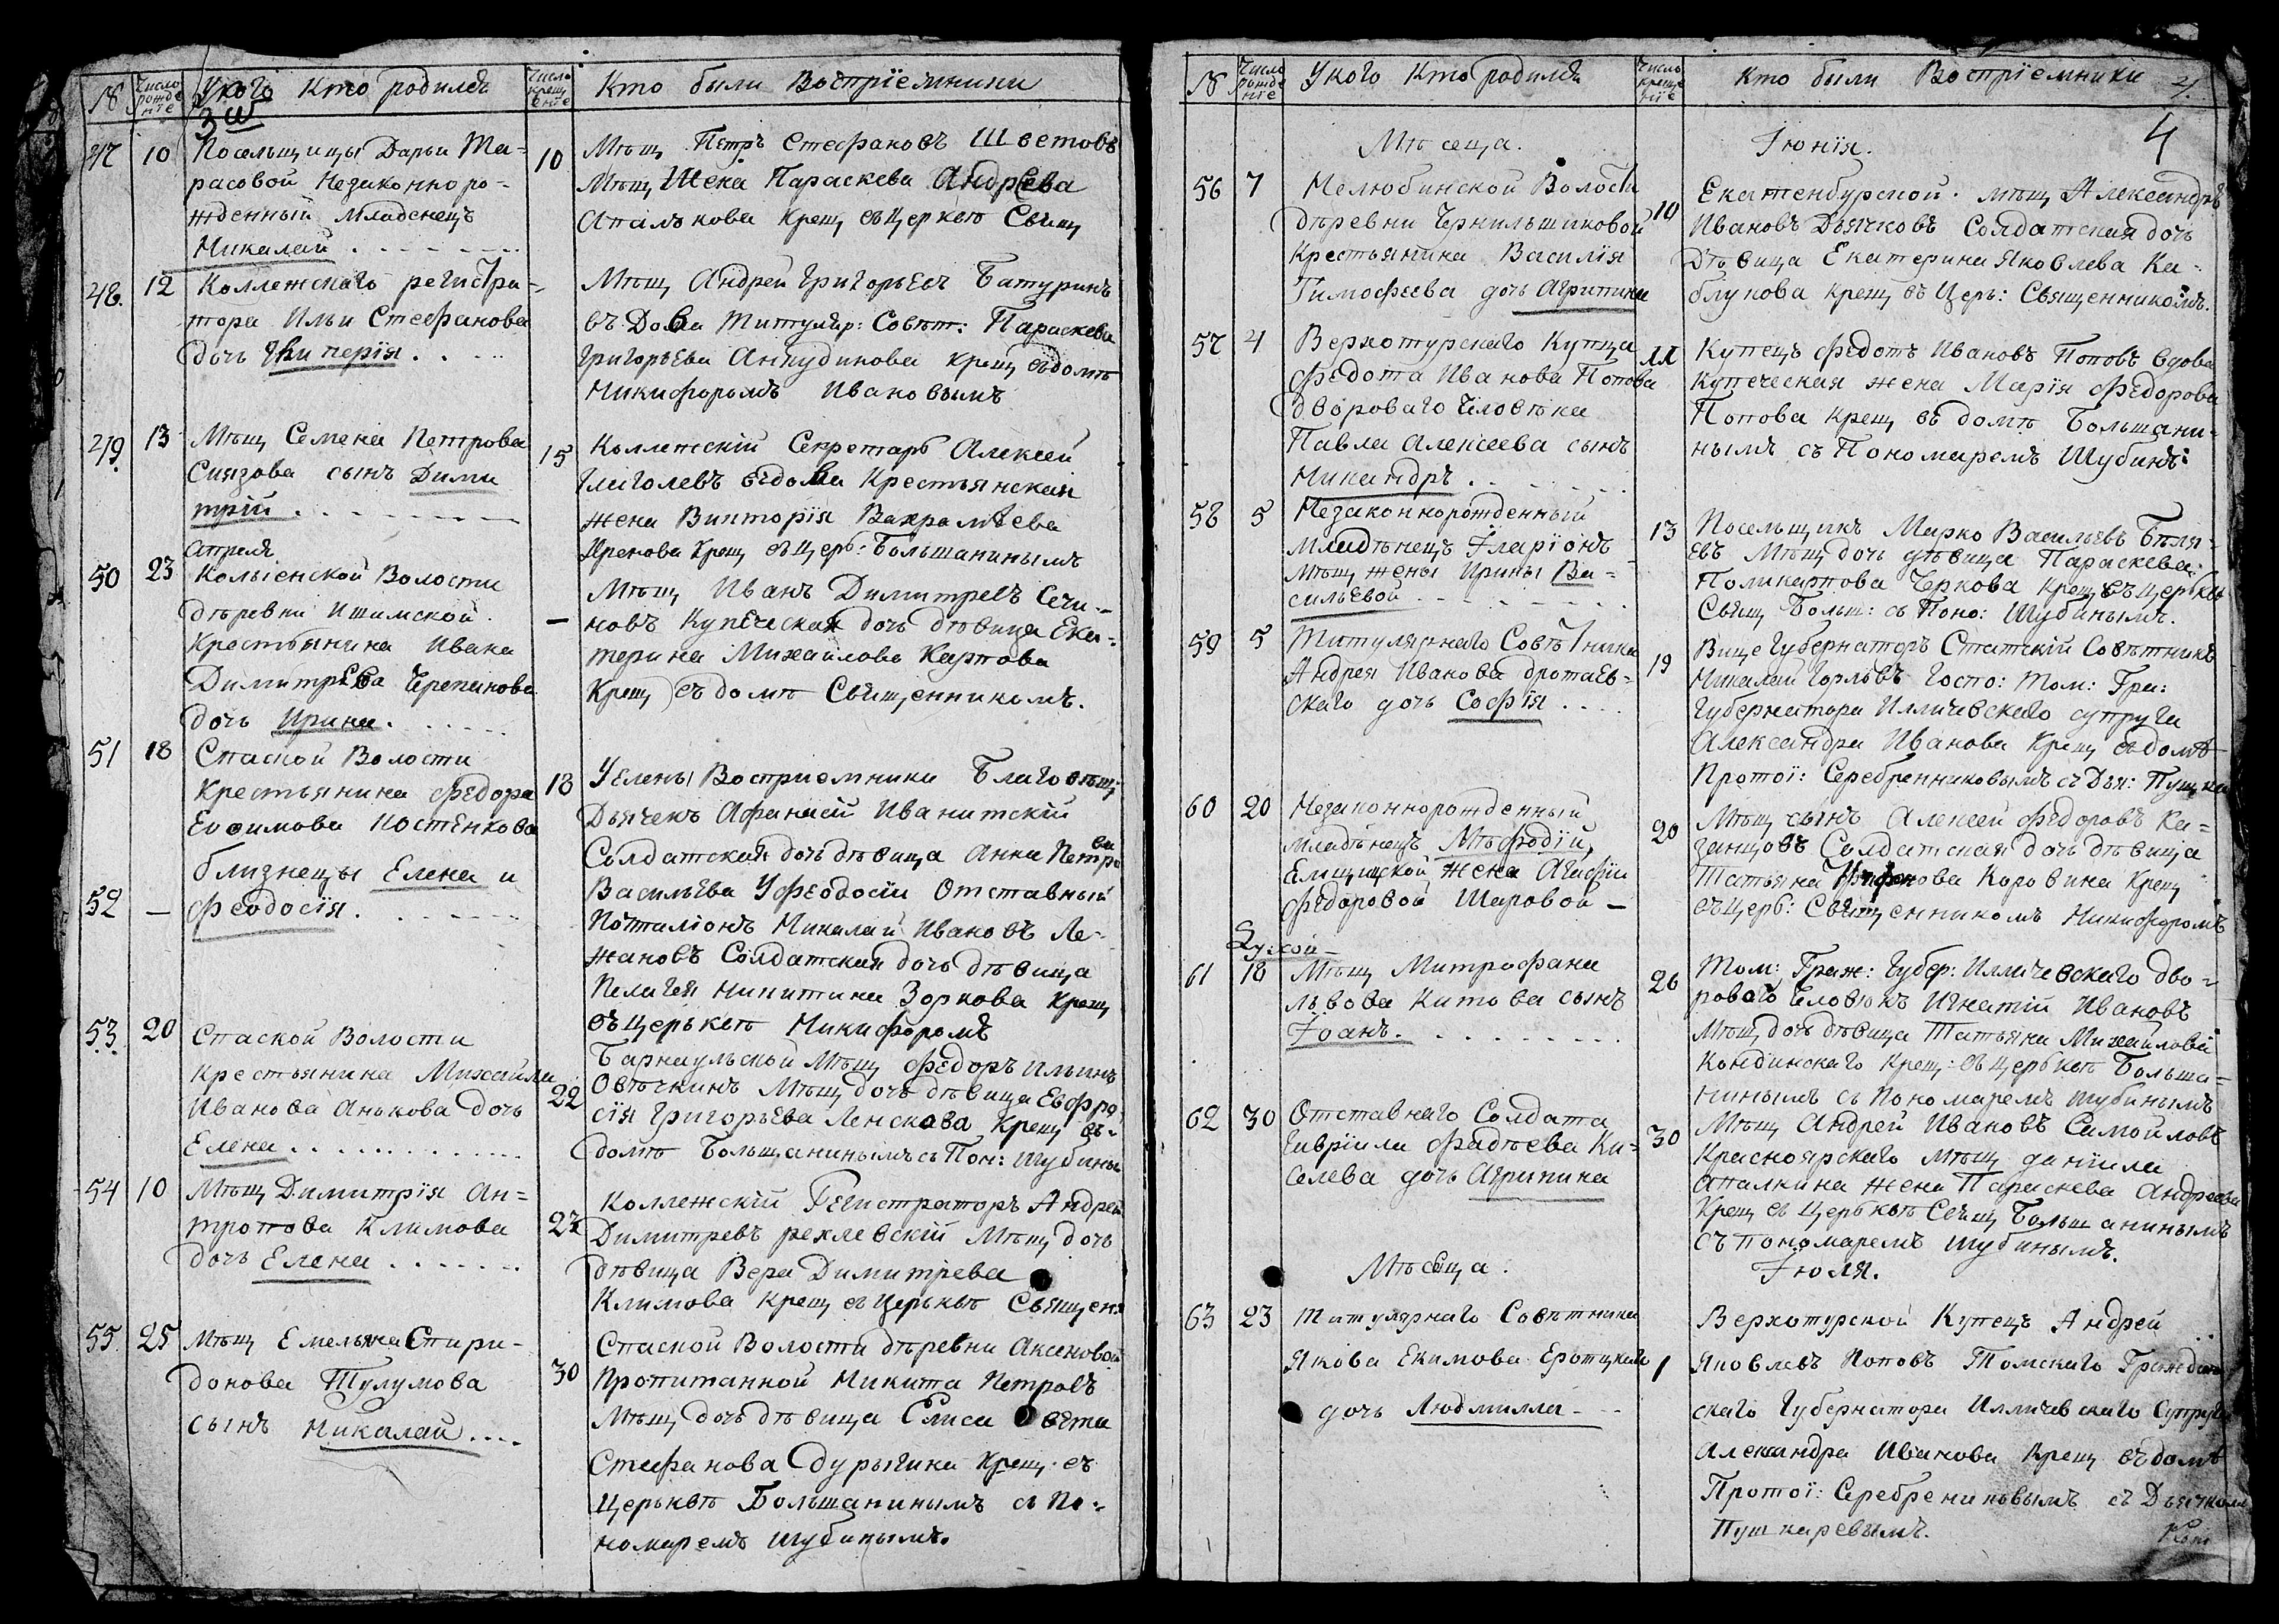 № Число рождение У кого Кто родился Число крещение Кто были Воспріемники
47 10 Посельщицы Дарьи Та-
расовой Незаконноро-
жденный младенецъ
Николай
10 Мѣщ Петръ Стефановъ Шветовъ
Мѣщ Жена Параскева Андреева
Апалькова Крещ въ церквѣ Свящ
48. 12 Коллежскаго регистра-
тора Ильи Стефанова
дочь Гликерія
Мѣщ Андрей Григорьевъ Батуринъ
въ Довы Титуляр: Совѣт: Параскева
Григорьева Анкудинова Крещ въ домѣ
Никифоромъ Ивановымъ
49. 13 Мѣщ Семена Петрова
Сиязова сынъ Дими
трій
15 Коллежскій Секретарь Алексей
Глаголевъ вдова Крестьянская
жена Викторія Вахрамѣева
Крещ въ церь: Большанинымъ
Апреля
50 23 Волости
дѣревни Ишимской
Крестьянина Ивана
Димитрева Черепанова
дочь Ирина
— Мѣщ Иванъ Димитревъ Сечи-
новъ Купеческая дочь дѣвица Ека-
терина Михайлова Карпова
Крещ въ домѣ Священникомъ.
51 18 Спаской Волости
Крестьянина Федора
Евсимова Костенкова
близнецы Елена и
52 — Феодосія
18 У Елены Восприемники Благовѣщ
Дьячекъ Афанасій Иванитскій
Солдатская дочь дѣвица Анна Петрова
Васильева У Феодосіи Отставный
Почталіонъ Николай Ивановъ Ле-
жановъ Солдатская дочь дѣвица
Пелагея Никитина Зоркова Крещ
въ церьквѣ Никифоромъ
53. 20 Спаской Волости
Крестьянина Михайла
Иванова Анькова дочь
Елена
22 Барнаульской Мѣщ Федоръ Ильинъ
Овѣчкинъ Мѣщ дочь дѣвица Евфро
сія Григорьева Ленскова Крещ въ-
домѣ Большанинымъ съ Пон: Шубины
54 10 Мѣщ Димитрія Ан-
тропова Климова
дочь Елена
23 Коллежскій Регистраторъ Андрей
Димитревъ рехлевскій Мѣщ дочь
дѣвица Вера Димитрева
Климова Крещ въ Церьквѣ Священ
55. 25 Мѣщ Емельяна Спири-
донова Тулумова
сынъ Николай
30 Спаской Волости дѣревни Аксеновой
Пропитанной Никита Петровъ
Мѣщ дочь дѣвица Елисавета
Стефанова Дурыгина Крещ въ
Церьквѣ Большанинымъ съ По-
номаремъ Шубинымъ.
№ Число рожденіе У кого Кто родился Число крещеніе Кто были Воспріемники 4.
4
Мѣсеца. Іюнія.
56 7 Нелюбинской Волости
дѣревни Чернильщиковой
Крестьянина Василія
Тимофеева дочь Агрипина
10 Екатенбурской мѣщ Александръ
Ивановъ Дьячковъ Солдатская дочь
Дѣвица Екатерина Яковлева Ка-
блукова Крещ въ Церь: Священникомъ.
57 4 Верхотурскаго Купца
Федота Иванова Попова
двороваго Человѣка
Павла Алексеева сынъ
Никандръ
11 Купецъ Федотъ Ивановъ Поповъ вдова
Купеческая жена Марія Федорова
Попова Крещ въ домѣ Большани-
нымъ съ Пономаремъ Шубинъ:
58 5 Незаконнорожденный
младѣнецъ Іларіонъ
мѣщ жены Ирины Ва-
сильевой
13 Посельщикъ Марко Васильевъ Бѣля-
евъ Мѣщ дочь дѣвица Параскева
Поликарпова Черкова Крещ въ церьквѣ
Свящ Больш: съ Поно: Шубинымъ.
59 5 Титулярнаго Совѣтника
Андрея Иванова дротаев-
скаго дочь Софія
19 Вице Губернаторъ Статскій Совѣтникъ
Николай Горловъ Госпо: Том: Гра:
Губернатора Илличевскаго супруга
Александра Иванова Крещ въ домѣ
Протоі: Серебренниковымъ съ Дья: Пушка
60 20 Незаконнорожденный
младѣнецъ Мѣфодій,
жена Агафіи
Федоровой Шаровой —
20 Мѣщ сынъ Алексей Федоровъ Ка-
занцовъ Солдатская дочь дѣвица
Татьяна Коровина Крещ
въ церь: Священникомъ Никифоромъ
61 18 Мѣщ Митрофана
Львова Китова сынъ
Іоанъ.
26 Том: Граж: Губер: Илличевскаго дво-
роваго Человѣкъ Игнатій Ивановъ
Мѣщ дочь дѣвица Татьяна Михайлова
Кондинскаго Крещ: въ церьквѣ Больша-
нинымъ съ Пономаремъ Шубинымъ
62 30 Отставнаго Солдата
Гавріила Фадѣева Ки-
селева дочь Агрипина
30 Мѣщ Андрей Ивановъ Самойловъ
Красноярскаго Мѣщ даніила
Апалкина жена Параскева Андреева
Крещ въ Церьквѣ Свящ Большанинымъ
съ пономаремъ Шубинымъ.
Мѣсеца. Іюля.
63 23 Титулярнаго Совѣтника
Якова Екимова Еротцкаго
дочь Людмилла
1 Верхотурской Купецъ Андрей
Яковлевъ Поповъ Томскаго Граждан
скаго Губернатора Илличевскаго Супруга
Александра Иванова Крещ въ домѣ
Протоі: Серебрениковымъ съ Дьячкомъ
Пушкаревымъ.